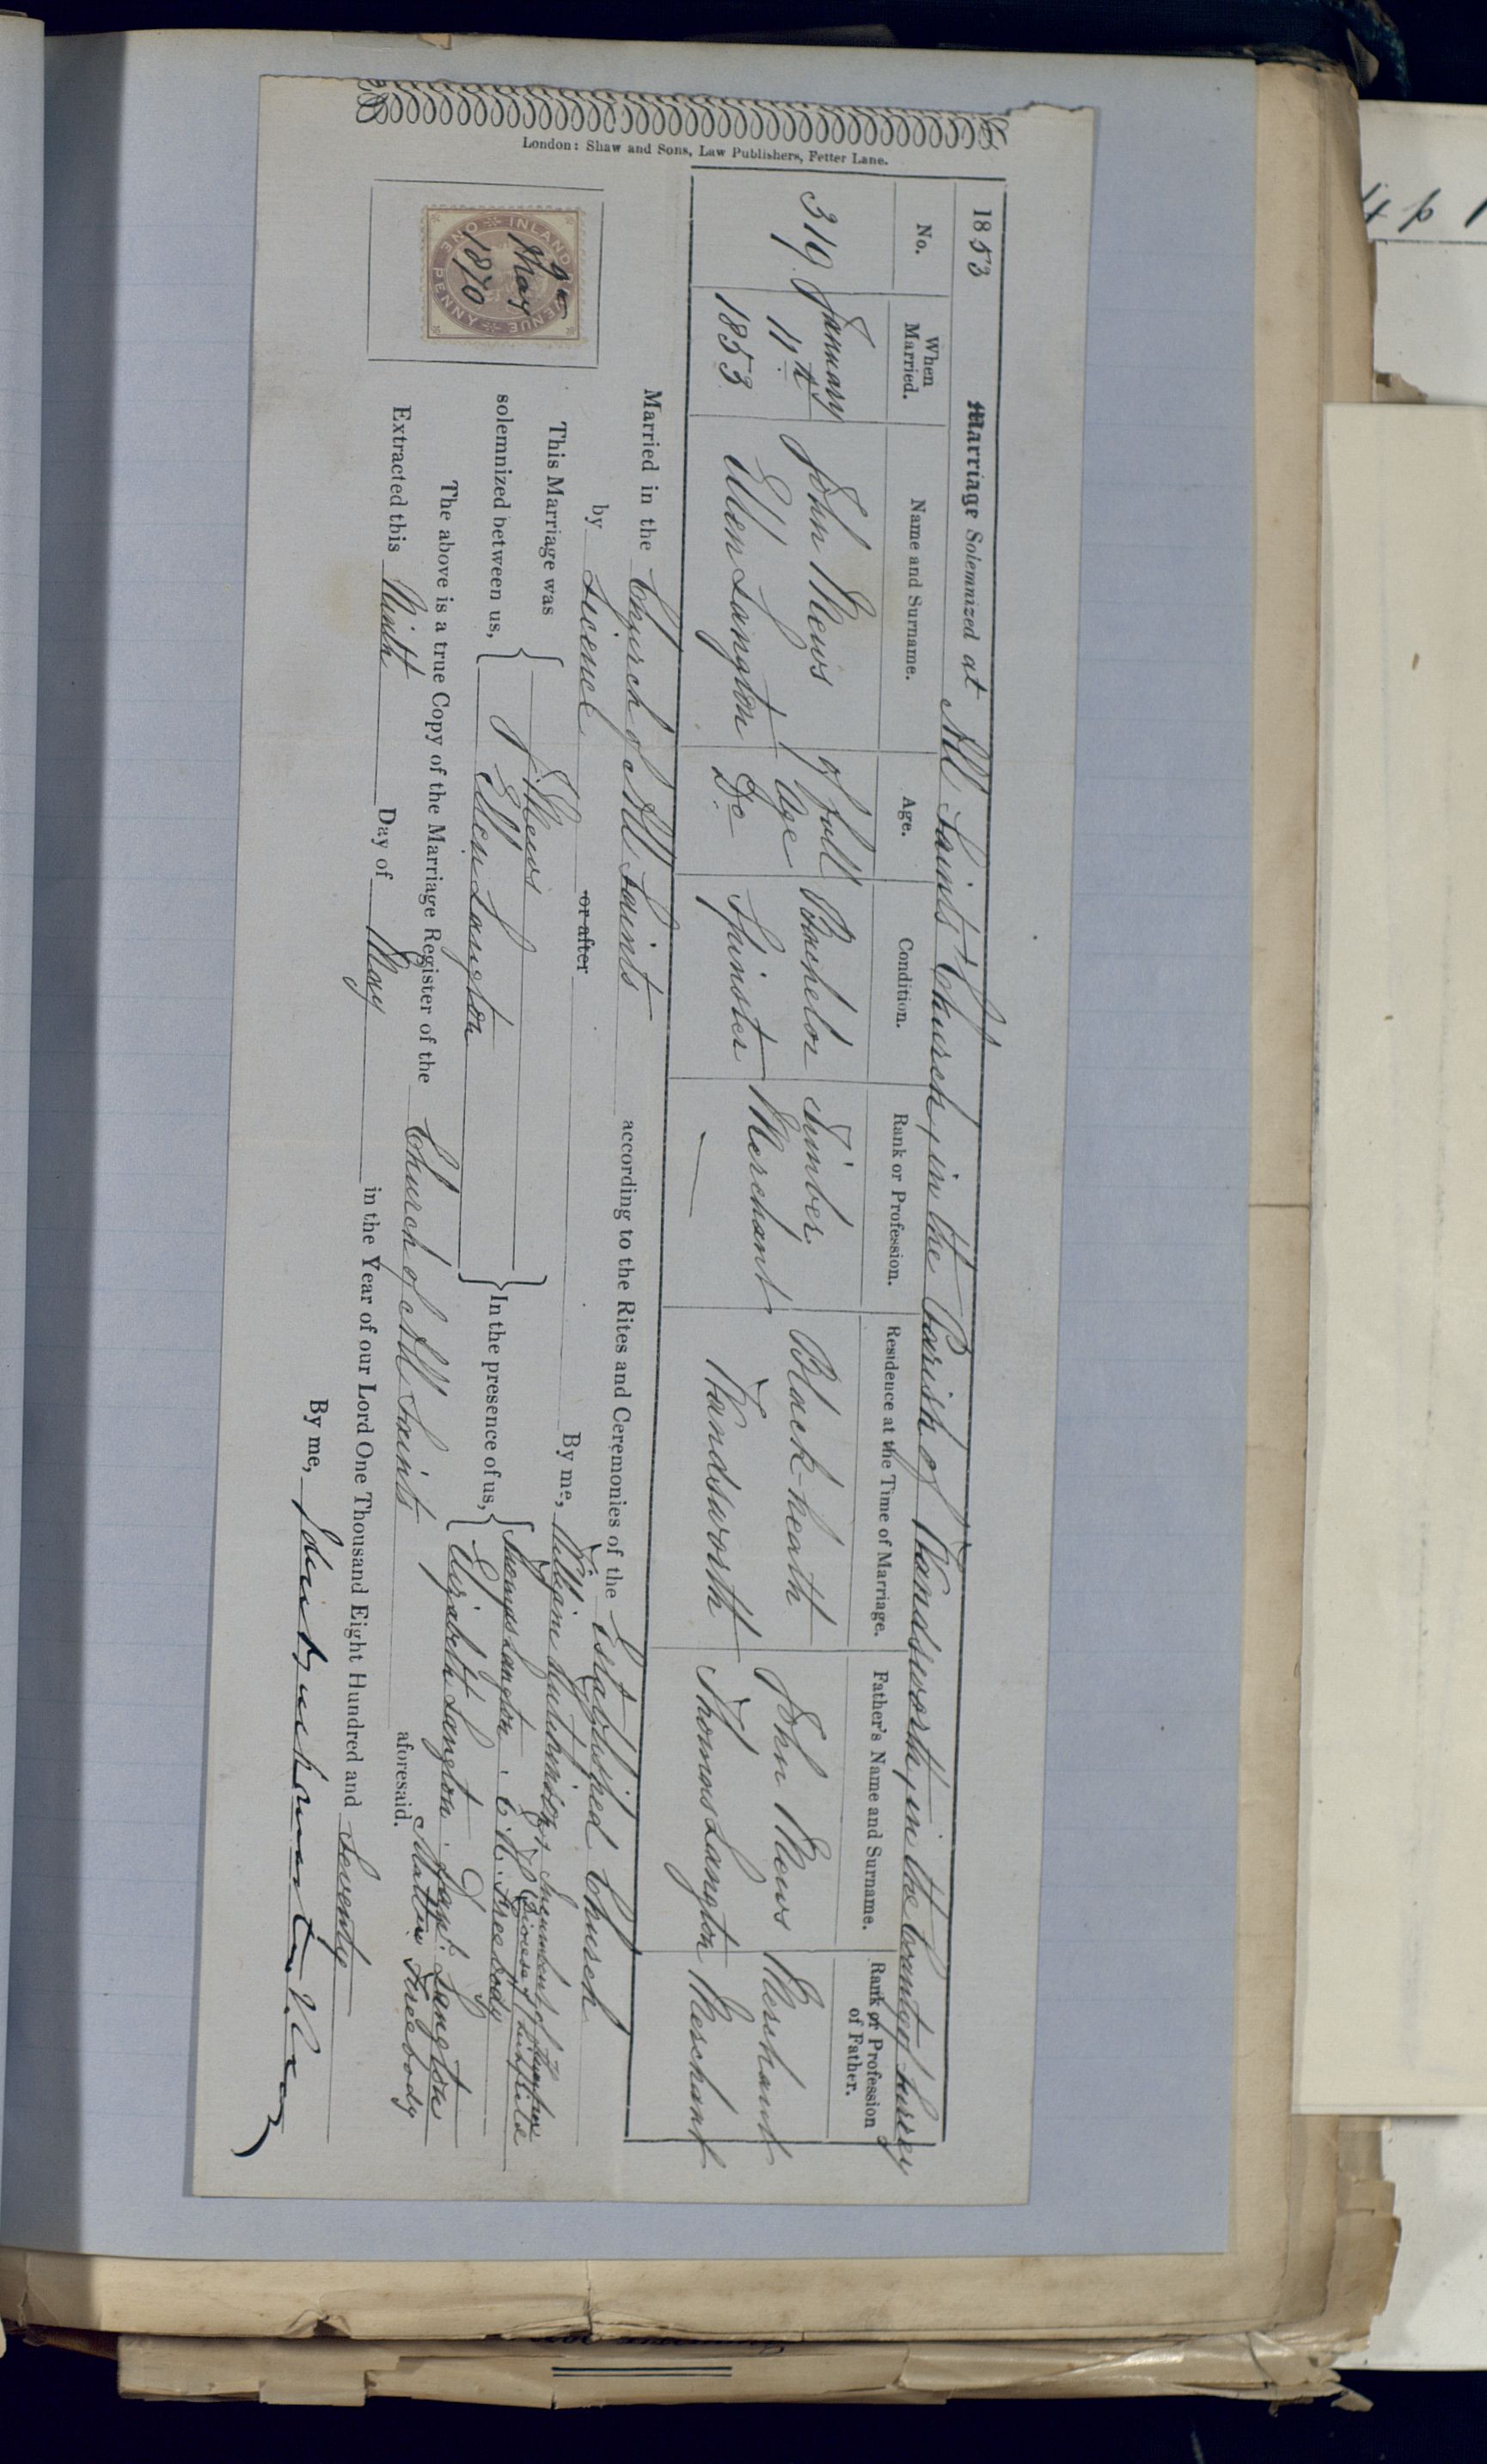 London: Shaw and Sons, Law Publishers, Fetter Lane.
1853 Marriage Solemnized at All Saints' Church, in the Parish of Wandsworth, in the County of Surrey
No. When Married. Name and Surname. Age. Condition. Rank or Profession. Residence at the Time of Marriage. Father's Name and Surname. Rank or Profession of Father.
319 January John Mews of full Bachelor Timber Black-heath John Mews Merchant
11th Age Merchant
1853 Ellen Langton Do Spinster — Wandsworth Thomas Langton Merchant
Married in the Church of All Saints according to the Rites and Ceremonies of the Established Church
by Licence or after By me, William Hutchinson, Incumbent of
Diocese of
This Marriage was J. Mews Thomas Langton C. R. Freebody
solemnized between us, Ellen Langton In the presence of us, Elizabeth Langton Jane Langton
Freebody
The above is a true Copy of the Marriage Register of the Church of All Saints aforesaid.
Extracted this Ninth Day of May in the Year of our Lord One Thousand Eight Hundred and Seventy
By me,
INLAND REVENUE ONE PENNY
9th
May
1870